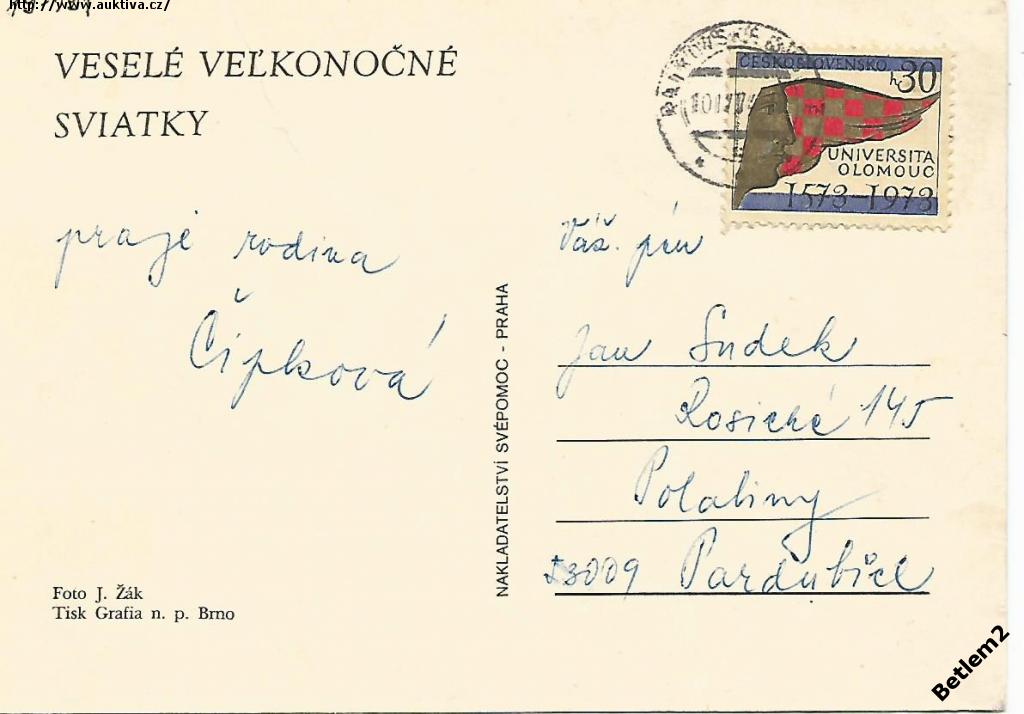 http://www.auktiva.cz/
VESELÉ VEĽKONOČNÉ
SVIATKY
praje rodina
Čipková
Foto J. Žák
Tisk Grafia n. p. Brno
NAKLADATELSTVÍ SVÉPOMOC - PRAHA
ČESKOSLOVENSKO
h 30
UNIVERSITA
OLOMOUC
1573-1973
Váž. pán
Jan Sudek
Rosické 145
Polabiny
53009 Pardubice
Betlem2